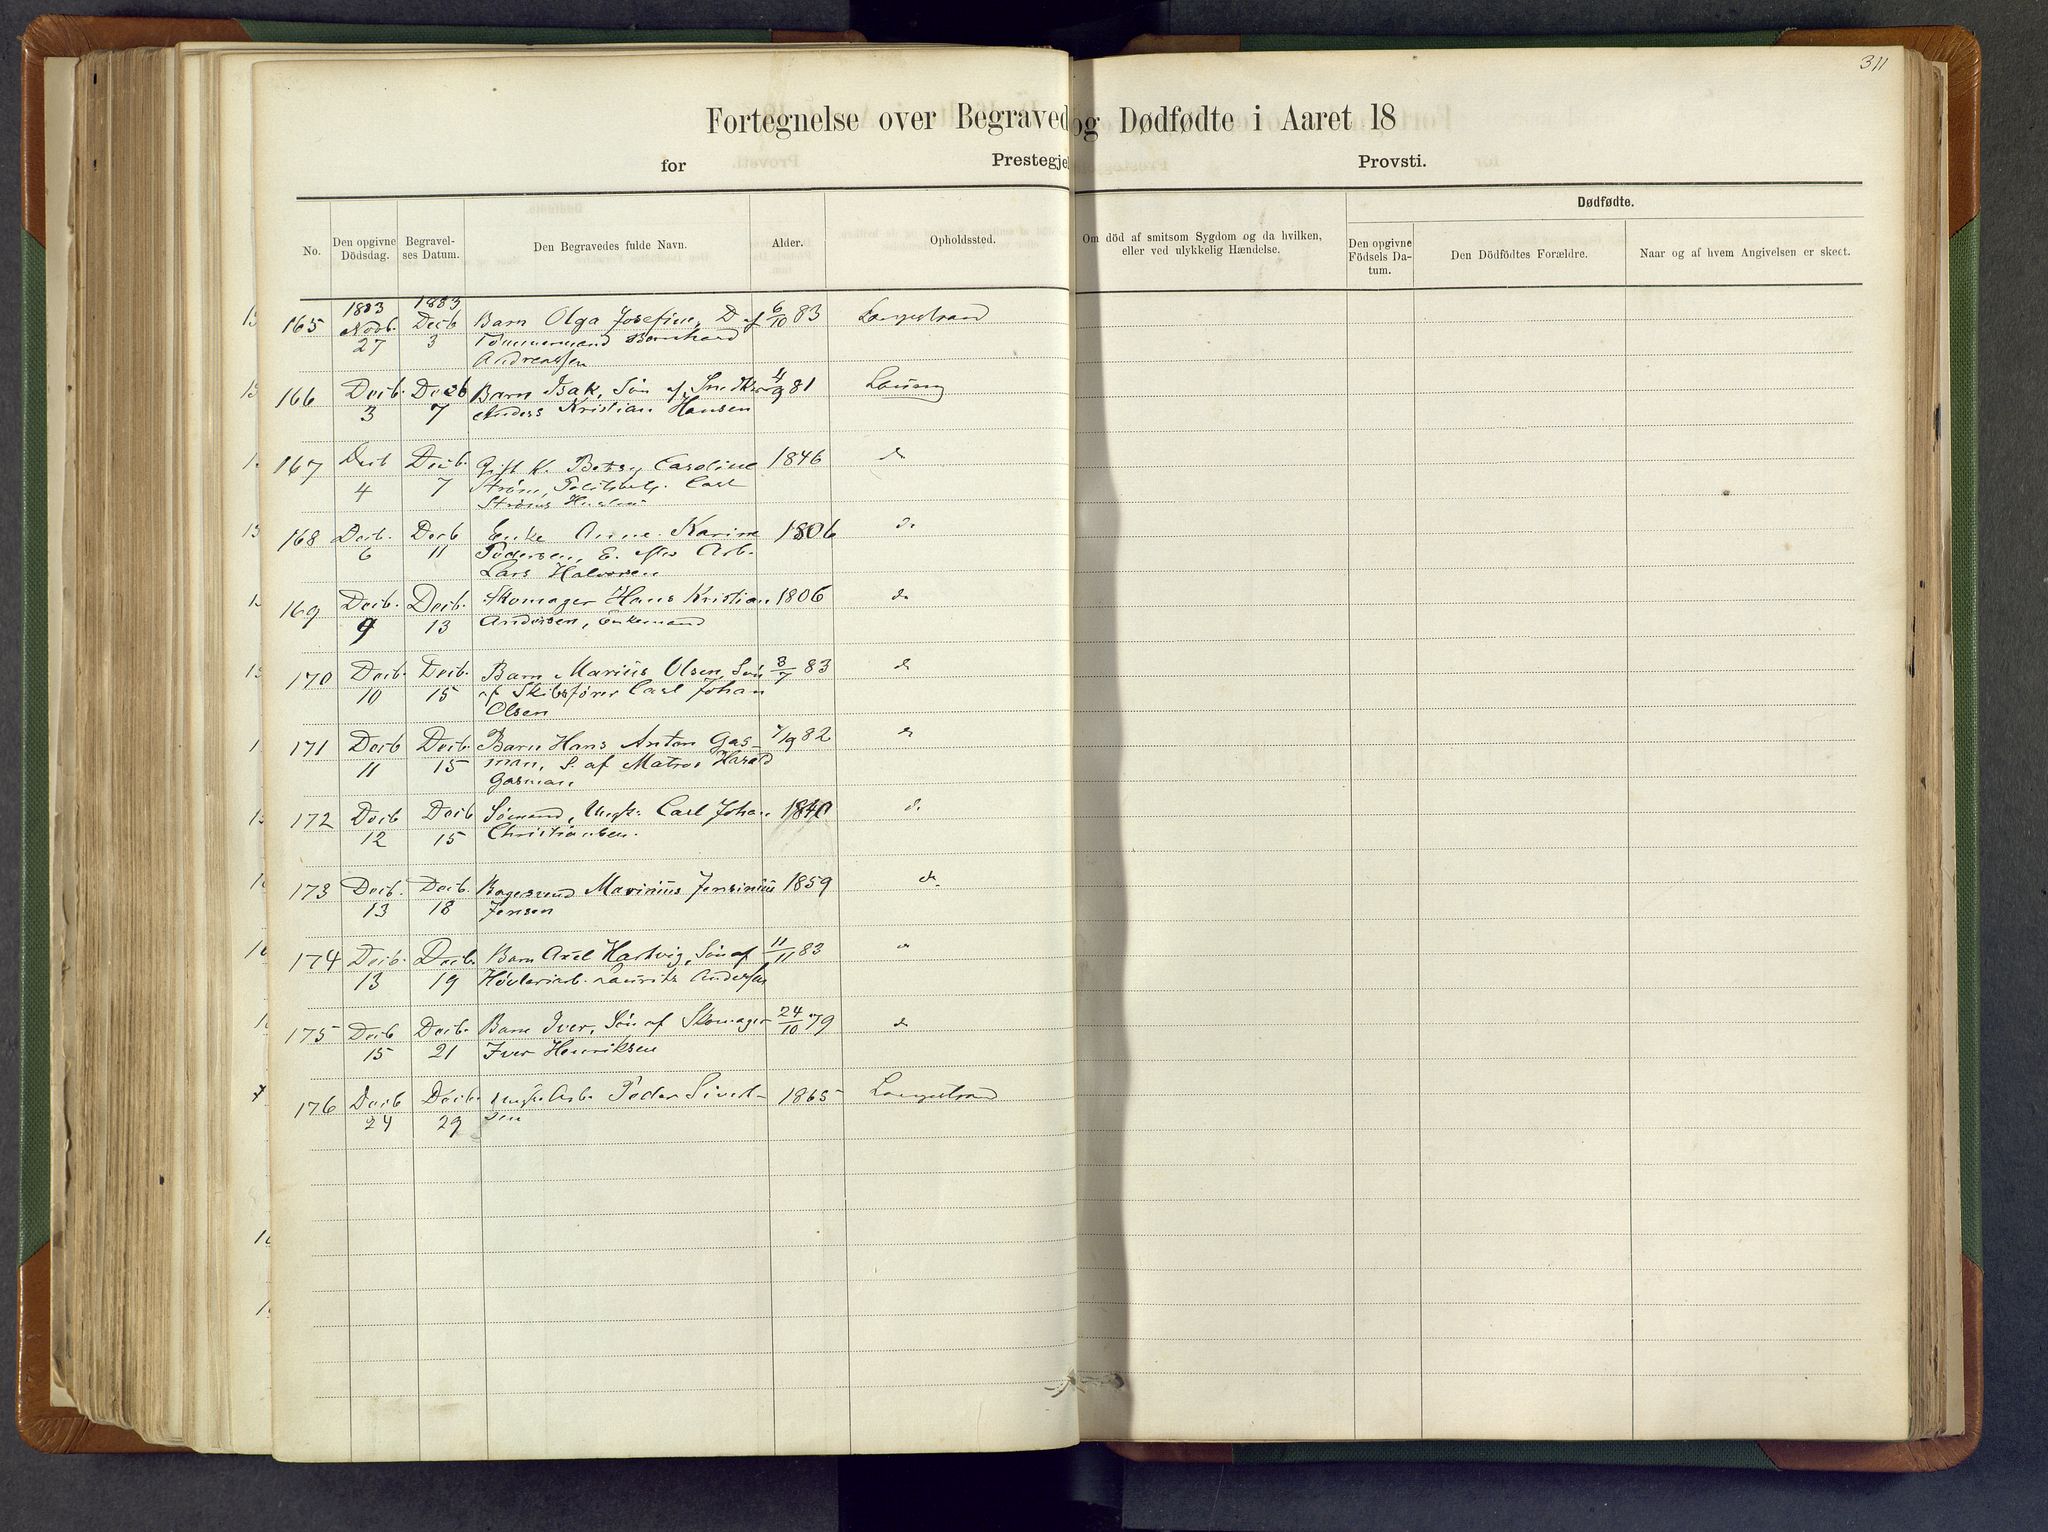 311
Fortegnelse over Begraved og Dødfødte i Aaret 18
for Prestegje Provsti.
No. Den opgivne Dödsdag. Begravelses Datum. Den Begravedes fulde Navn. Alder. Opholdssted. Om död af smitsom Sygdom og da hvilken, eller ved ulykkelig Hændelse. Dødfødte. Den opgivne Födsels Datum. Den Dödfödtes Forældre. Naar og af hvem Angivelsen er skeet.
1883 1883
165 Novb. Decb Barn Olga Josefine, D. af 6/10 83 Langestrand
27 3 Tømmermand Bernhard
Andreassen
166 Decb. Decb Barn Isak, Søn af Snedker 4/9 81 Laurvig
3 7 Anders Kristian Hansen
167 Decb Decb. Gift K. Betsy Caroline 1846 do
4 7 Strøm, Carl
Strøms Hustru
168 Decb. Decb Enke Anne Karine 1806 do
6 11 Pedersen, E. efter Arb.
Lars Halvorsen
169 Decb. Decb. Skomager Hans Kristian 1806 do
9 13 Andersen, Enkemand
170 Decb. Decb. Barn Marius Olsen, Søn 3/7 83 do
10 15 af Skibsfører Carl Johan
Olsen
171 Decb Decb. Barn Hans Anton Gas- 82 do
11 15 man, S. af Matros Harald
Gasman
172 Decb Decb Sømand, Ungk. Carl Johan 1840 do
12 15 Christiansen.
173 Decb. Decb. Bagersvend Marinius Jensinius 1859 do.
13 18 Jensen
174 Decb. Decb. Barn Axel Hartvig, Søn af 11/11 83 do
13 19 Høvleriarb. Laurits Andersen
175 Decb Decb. Barn Iver, Søn af Skomager 24/10 79 do
15 21 Iver Henriksen
176 Decb Decb. Ungk. Arb. Peder Sivert- 1865 Langestrand
24 29 sen